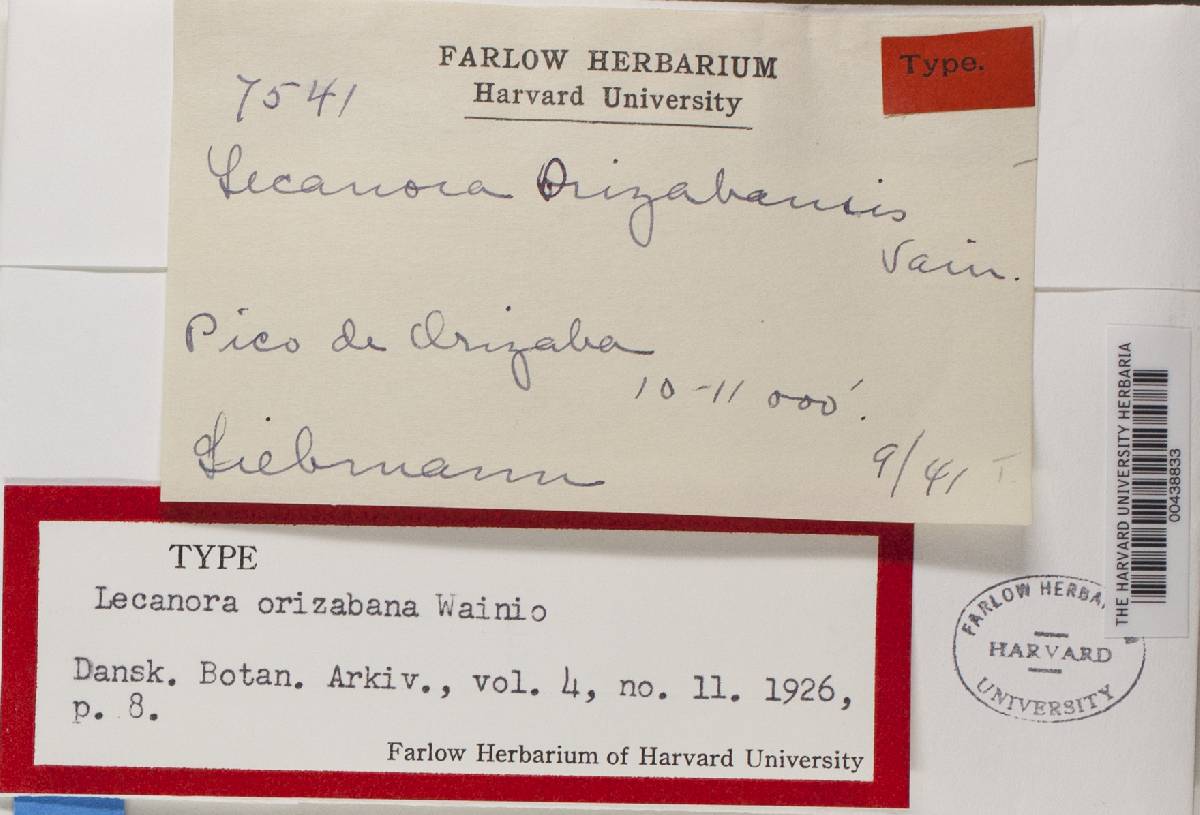 FARLOW HERBARIUM
Harvard University
Type.
7541
Lecanora Orizabansis
Vain.
Pico de Orizaba
10-11 000'.
Liebmann
9/41
TYPE
Lecanora orizabana Wainio
Dansk. Botan. Arkiv., vol. 4, no. 11. 1926,
p. 8.
Farlow Herbarium of Harvard University
THE HARVARD UNIVERSITY HERBARIA
00438833
FARLOW HERBA
HARVARD
UNIVERSITY